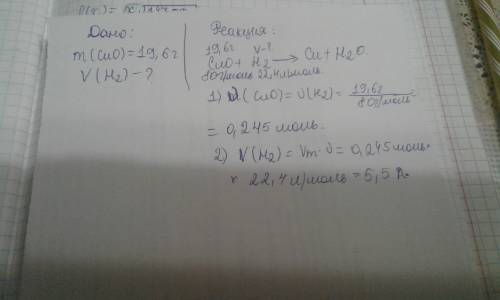 Дано:
m(CuO)=19,6г
V(H₂)-?
Реакция:
19,6г V-?
CuO+H₂→Cu+H₂O.
80г/моль 22,4л/моль
1) ν(CuO)=ν(H₂)=19,6г/80г/моль
=0,245 моль.
2) V(H₂)=Vm·ν=0,245моль·
· 22,4л/моль=5,5л.